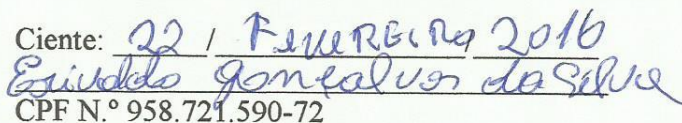 Ciente: 22 / FEVEREIRO 2016
Erivaldo Gonçalves da Silva
CPF N.º 958.721.590-72